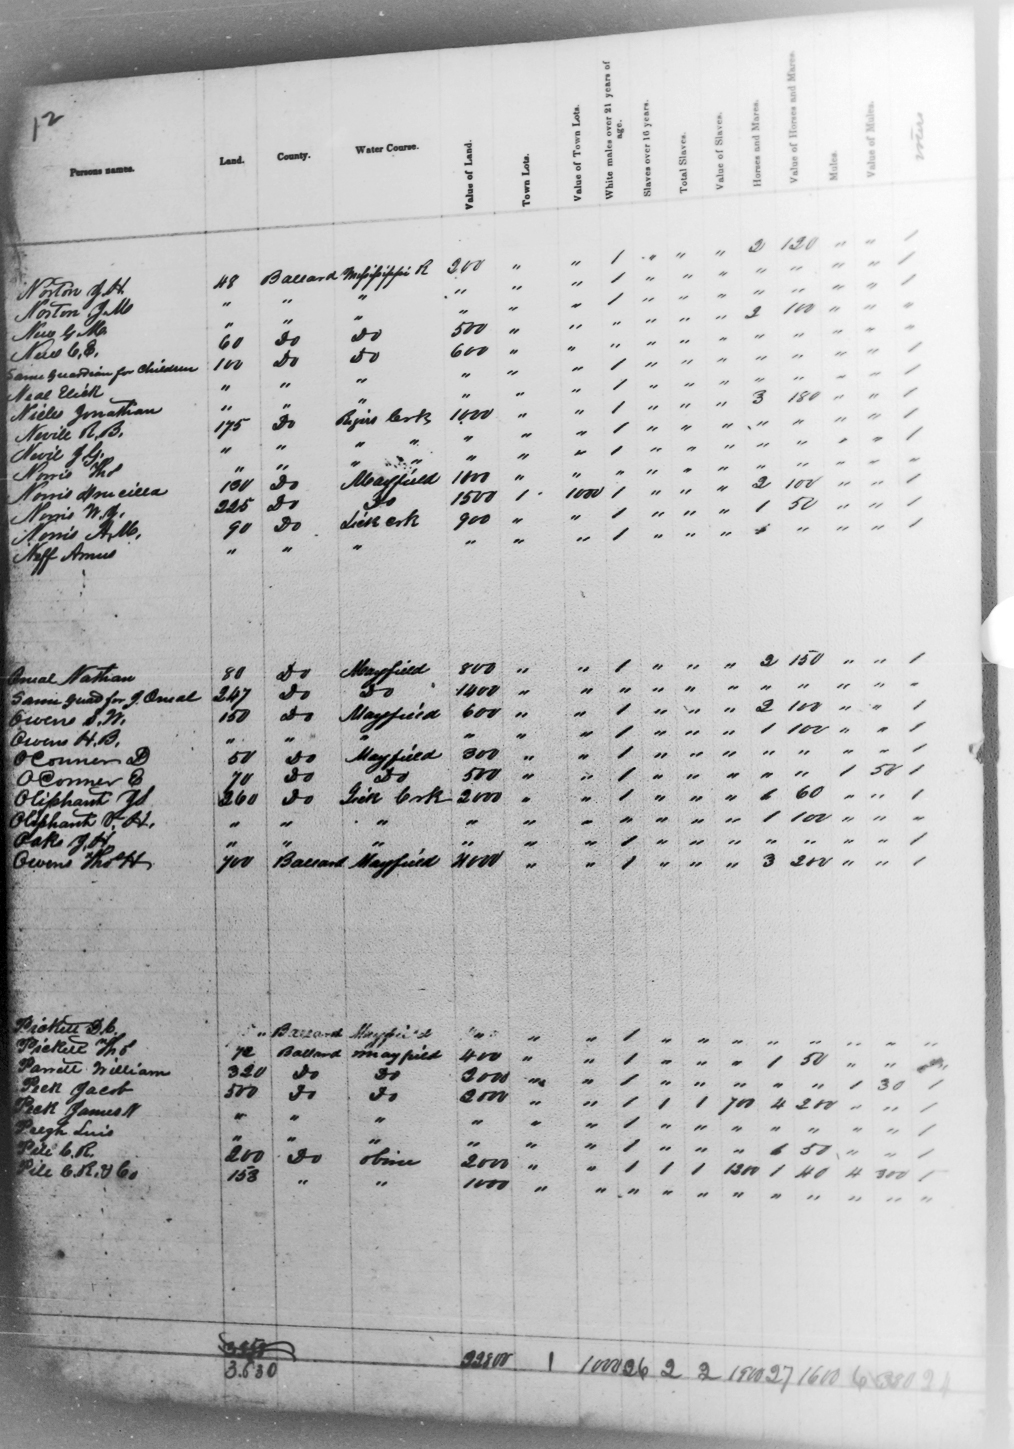 12
Persons names. Land. County. Water Course. Value of Land. Town Lots. Value of Town Lots. White males over 21 years of age. Slaves over 16 years. Total Slaves. Value of Slaves. Horses and Mares. Value of Horses and Mares. Mules. Value of Mules.
Norton J. H. 48 Ballard Mississippi R 200 " " 1 " " " 2 120 " " 1
Norton J M " " " " " " 1 " " " " " " " 1
New G. M. " " " " " " 1 " " " " " " " 1
New C. E. 60 Do Do 500 " " " " " " 2 100 " " "
Same Guardian for Children 100 Do Do 600 " " " " " " " " " " "
Neal Elick " " " " " " 1 " " " " " " " 1
Niele Jonathan " " " " " " 1 " " " " " " " 1
Nevile R. B. 175 Do 1000 " " 1 " " " 3 180 " " 1
Nevil J. G. " " " " " " 1 " " " " " " " 1
Norris Thos " " " " " " 1 " " " " " " " 1
Norris 130 Do Mayfield 1000 " " " " " " " " " " "
Norris W. J. 225 Do Do 1500 1 1000 1 " " " 2 100 " " 1
Norris A. M. 90 Do Lick Crk 900 " " 1 " " " 1 50 " " 1
Neff Amus " " " " " " 1 " " " " " " 1
Oneal Nathan 80 Do Mayfield 800 " " 1 " " " 2 150 " " 1
Same Guad for J. Oneal 247 Do Do 1400 " " " " " " " " " " "
Owens D. W. 150 Do Mayfield 600 " " 1 " " " 2 100 " " 1
Owens H. B. " " " " " " 1 " " " 1 100 " " 1
OConner D 50 Do Mayfield 300 " " 1 " " " " " " " 1
OConner E 70 Do Do 500 " " 1 " " " " " 1 50 1
Oliphant 260 Do Lick Crk 2000 " " 1 " " " 60 " " 1
Oliphant H. " " " " " " " " " 1 100 " " "
Oaks J. H. " " " " " " 1 " " " " " " " 1
Owens Thos H 700 Ballard Mayfield " " 1 " " " 3 200 " " 1
Pickett D. C. " Ballard Mayfield " " 1 " " " " " " " "
Pickett Thos 72 Ballard Mayfield 400 " " 1 " " " 1 50 " "
Parrett William 320 Do Do 2000 " " 1 " " " " " 1 30 1
Peck Jacob 500 Do Do 2000 " " 1 1 1 700 4 200 " " 1
Peck James N " " " " " " 1 " " " " " " " 1
Luis " " " " " " 1 " " " 50 " " 1
Pile C. R. 200 Do obine 2000 " " 1 1 1 1200 1 40 4 300 1
Pile C. R. & Co 153 " " 1000 " " " " " " " " " " "
3.630 22800 1 1000 26 2 2 1900 27 1600 6 380